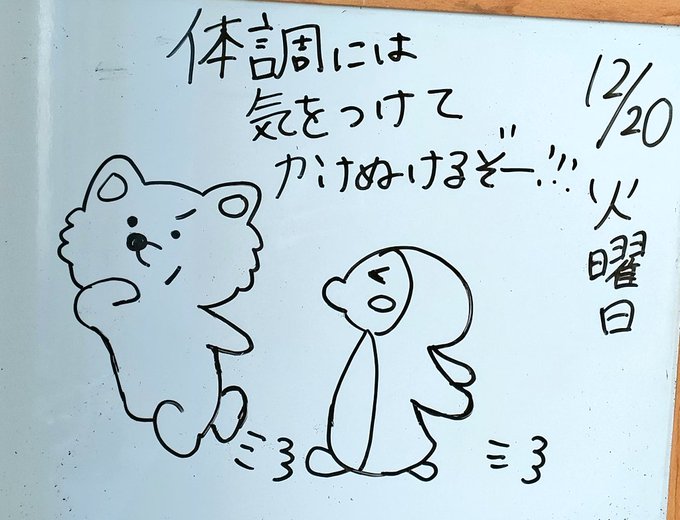 体調には
気をつけて
かけぬけるぞー!!!
12/20
火
曜
日